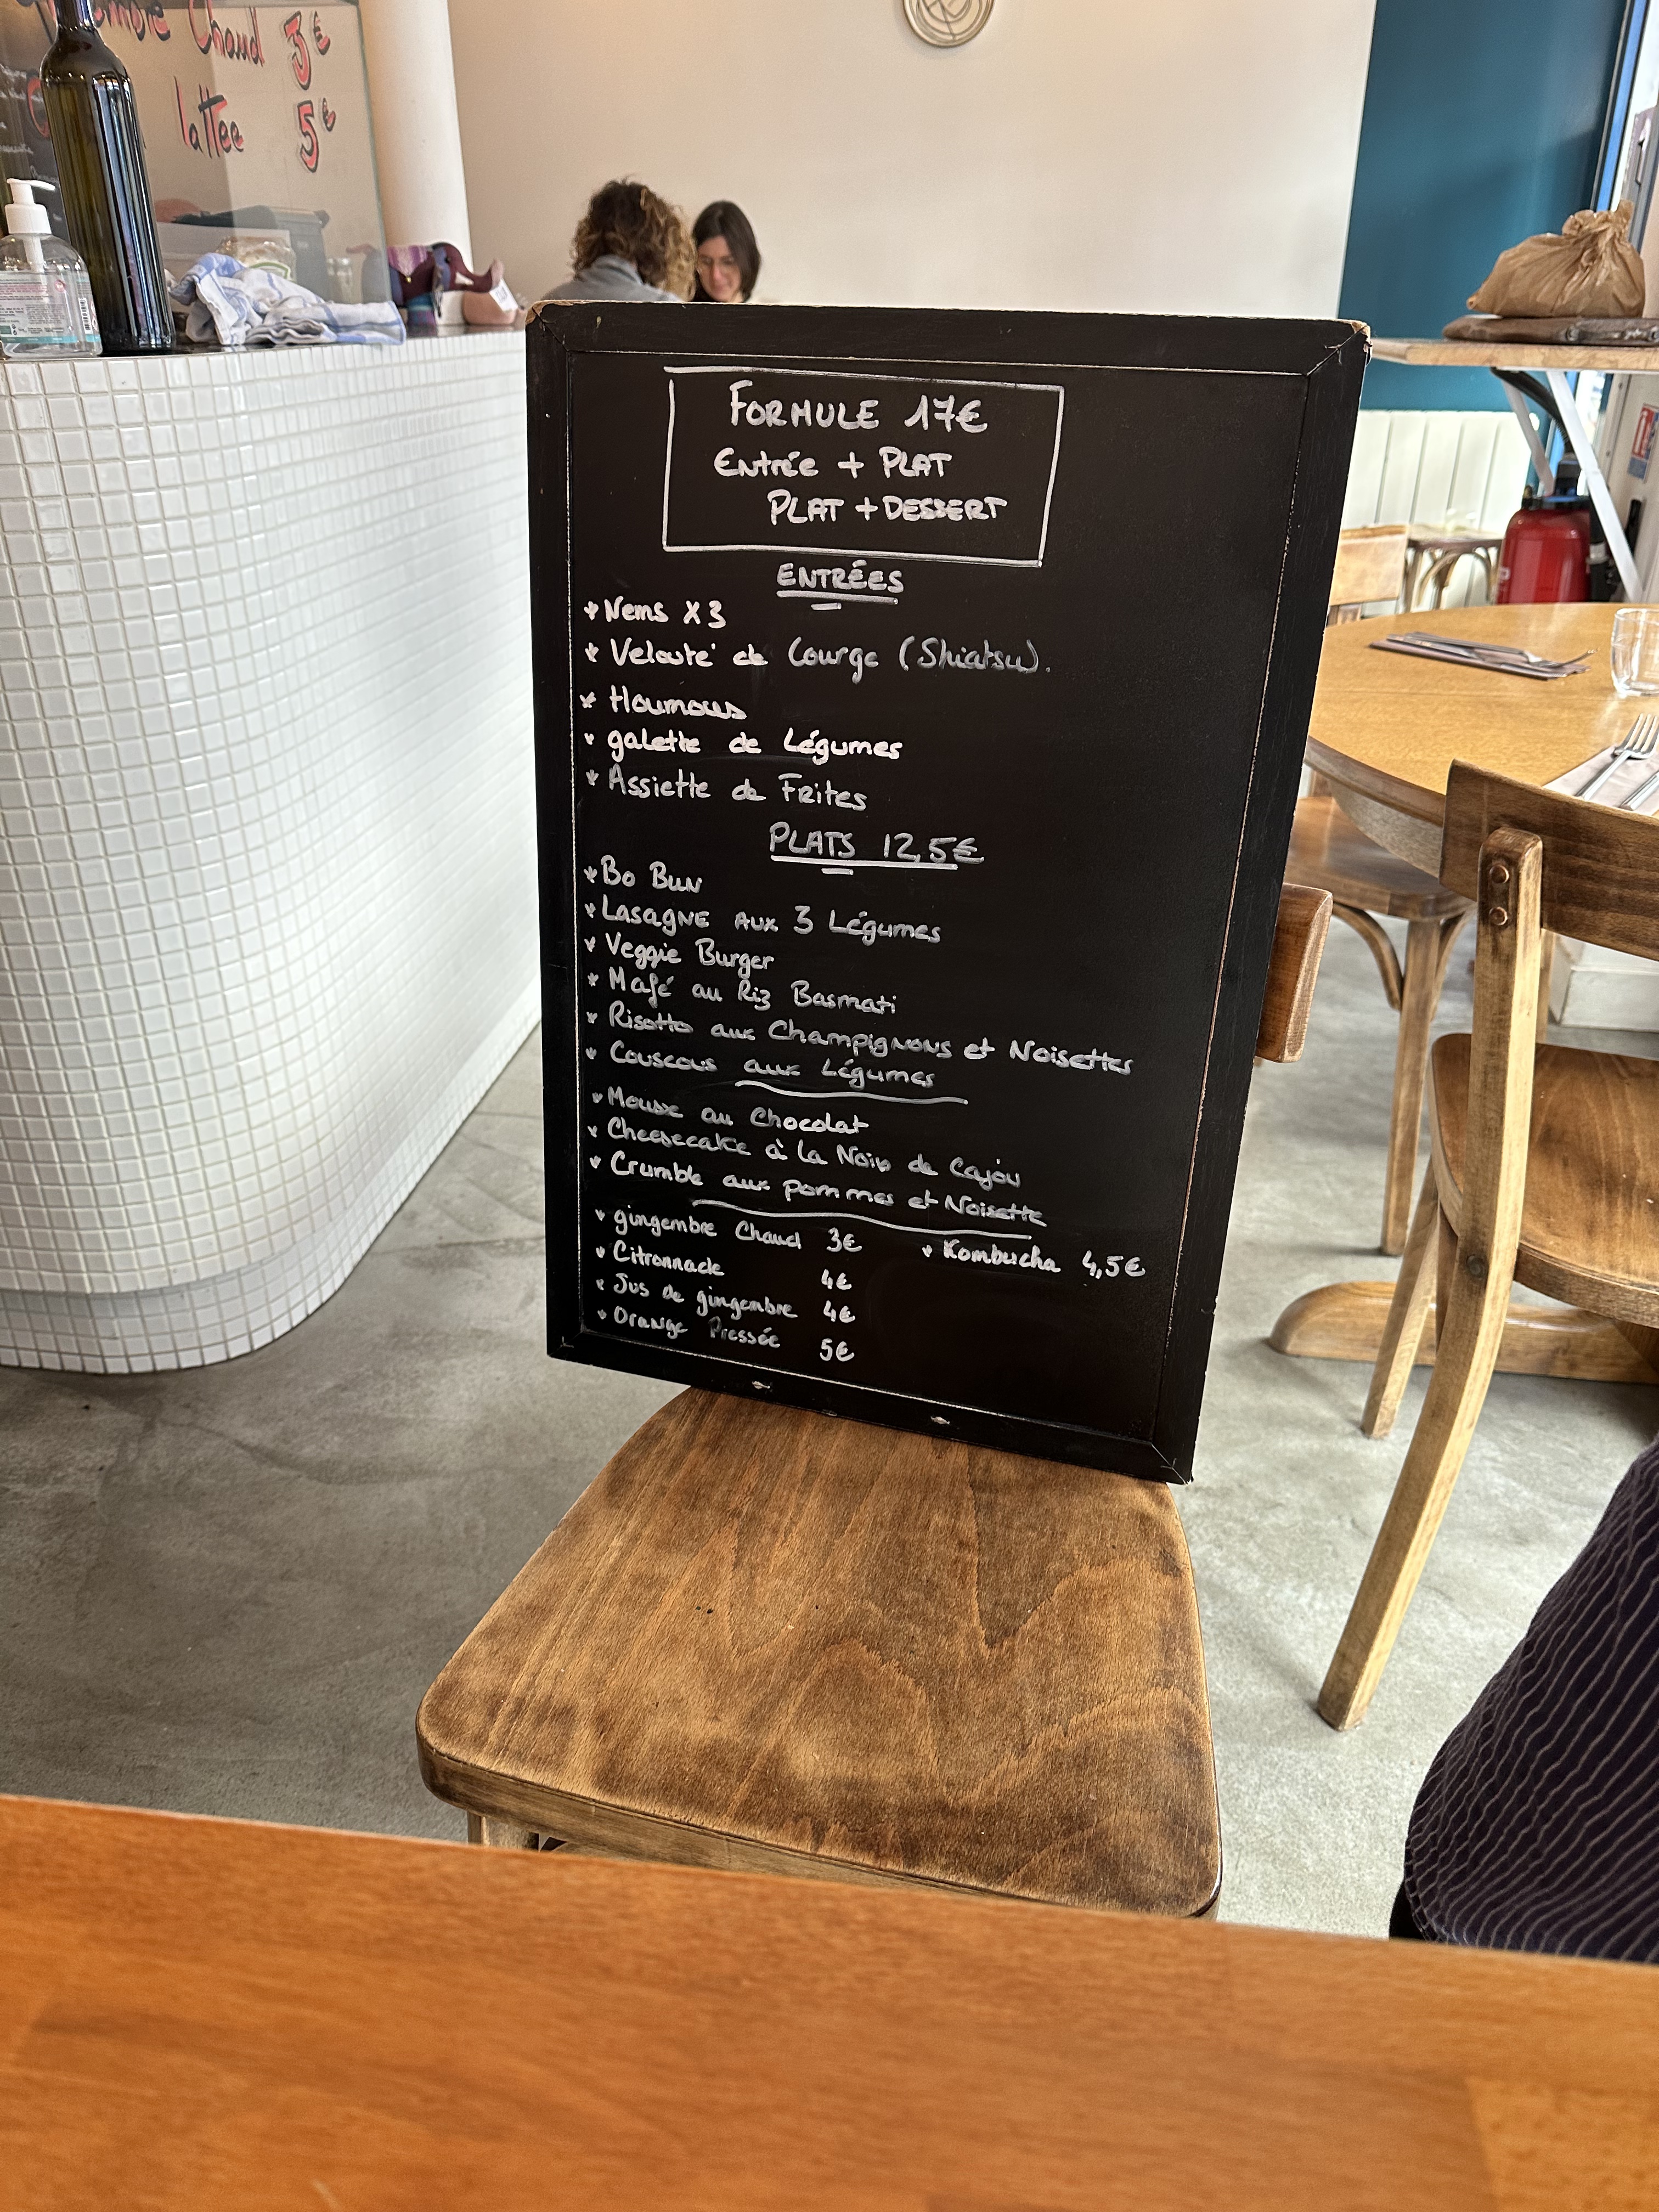 Chaud 3€
lattee 5€
FORMULE 17€
Entrée + PLAT
PLAT + DESSERT
ENTRÉES
* Nems X3
* Velouté de Courge (Shiatsu).
* Houmous
* galette de Légumes
* Assiette de Frites
PLATS 12,5€
* Bo Bun
* Lasagne aux 3 Légumes
* Veggie Burger
* Mafé au Riz Basmati
* Risotto aux Champignons et Noisettes
* Couscous aux Légumes
* Mousse au Chocolat
* Cheesecake à la Noix de Cajou
* Crumble aux pommes et Noisette
* gingembre Chaud 3€ * Kombucha 4,5€
* Citronnade 4€
* Jus de gingembre 4€
* Orange Pressée 5€